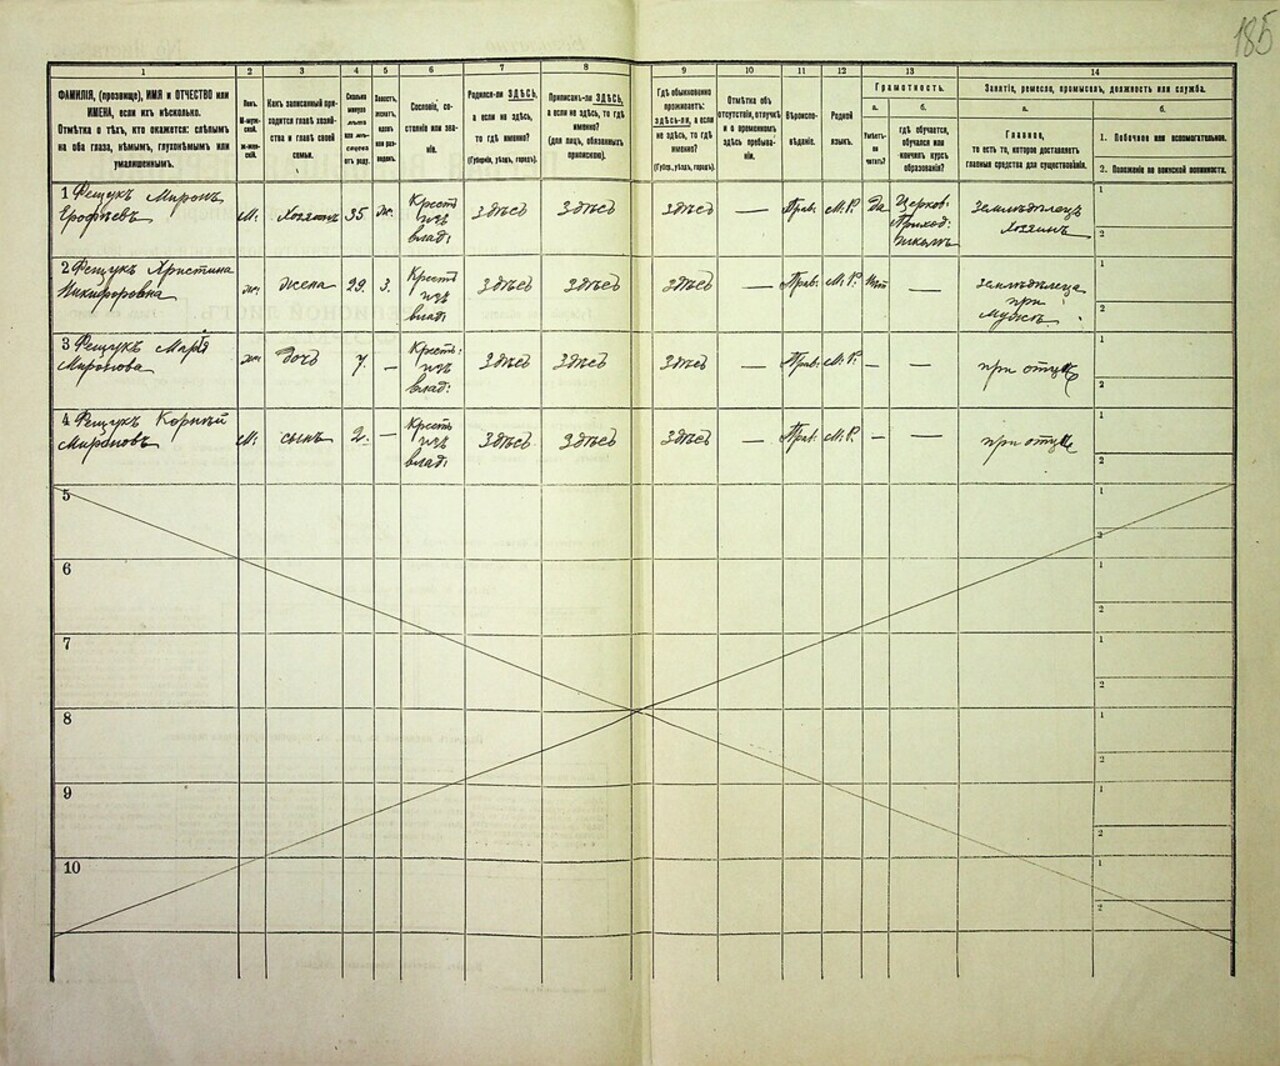 185
1
2
3
4
5
6
7
8
9
10
11
12
13
14
ФАМИЛІЯ, (прозвище), ИМЯ и ОТЧЕСТВО или
ИМЕНА, если ихъ нѣсколько.
Отмѣтка о тѣхъ, кто окажется: слѣпымъ
на оба глаза, нѣмымъ, глухонѣмымъ или
умалишеннымъ.
Полъ.
М-муж-
ской.
Ж-жен-
скій.
Какъ записанный при-
ходится главѣ хозяй-
ства и главѣ своей
семьи.
Сколько
минуло
лѣтъ
или мѣ-
сяцевъ
отъ роду.
Холостъ,
женатъ,
вдовъ
или раз-
веденъ.
Сословіе, со-
стояніе или зва-
ніе.
Родился-ли ЗДѢСЬ,
а если не здѣсь,
то гдѣ именно?
(Губернія, уѣздъ, городъ).
Приписанъ-ли ЗДѢСЬ,
а если не здѣсь, то гдѣ
именно?
(для лицъ, обязанныхъ
припискою).
Гдѣ обыкновенно
проживаетъ:
ЗДѢСЬ-ли, а если
не здѣсь, то гдѣ
именно?
(Губер., уѣздъ, городъ).
Отмѣтка объ
отсутствіи, отлучкѣ
и о временномъ
здѣсь пребыва-
ніи.
Вѣроиспо-
вѣданіе.
Родной
языкъ.
Грамотность.
а.
Умѣетъ-
ли
читать?
б.
гдѣ обучается,
обучался или
кончилъ курсъ
образованія?
Занятіе, ремесло, промыселъ, должность или служба.
а.
Главное,
то есть то, которое доставляетъ
главныя средства для существованія.
б.
1. Побочное или вспомогательное.
2. Положеніе по воинской повинности.
1 Фещукъ Миронъ
Ерофѣевъ
М.
Хозяинъ
35
ж.
Крест
изъ
влад:
Здѣсь
Здѣсь
Здѣсь
—
Прав:
М.Р.
Да
Церков:
Приход:
школѣ
Земледѣлецъ
Хозяинъ
1
2
2 Фещукъ Христина
Никифоровна
ж.
жена
29
З.
Крест
изъ
влад:
Здѣсь
Здѣсь
Здѣсь
—
Прав:
М.Р.
Нѣт
—
Земледѣлеца
при
мужѣ
1
2
3 Фещукъ Марія
Миронова
ж.
дочь
7.
—
Кресть:
изъ
влад:
Здѣсь
Здѣсь
Здѣсь
—
Прав:
М.Р.
—
—
при отцѣ
1
2
4 Фещукъ Корнѣй
Мироновъ
М.
сынъ
2.
—
Кресть
изъ
влад:
Здѣсь
Здѣсь
Здѣсь
—
Прав:
М.Р.
—
—
при отцѣ
1
2
5
1
2
6
1
2
7
1
2
8
1
2
9
1
2
10
1
2